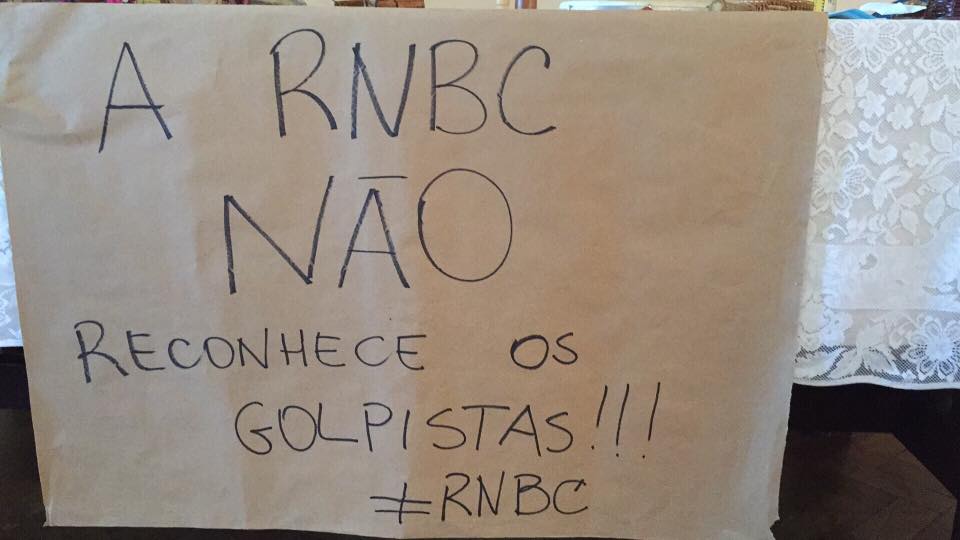 A RNBC
NÃO
RECONHECE OS
GOLPISTAS!!!
#RNBC